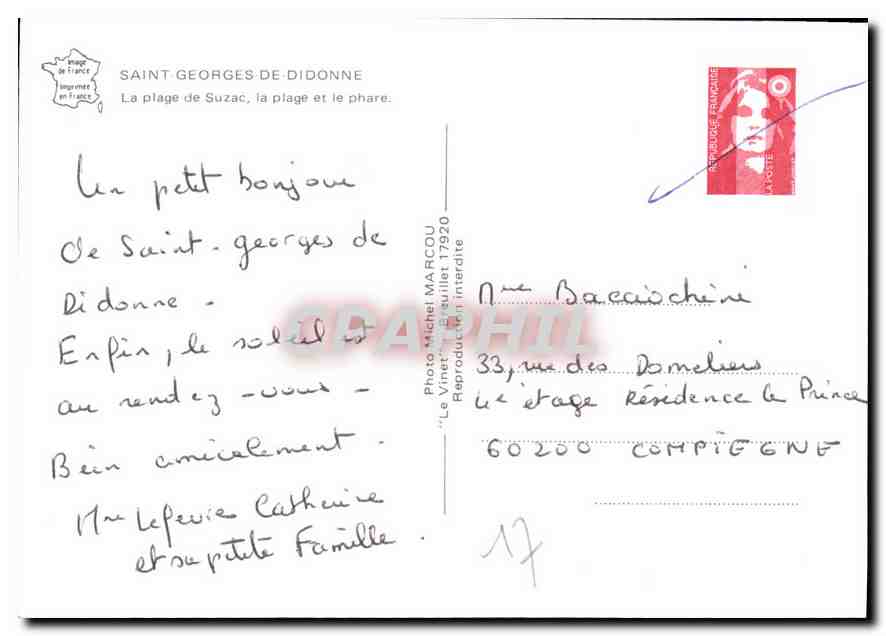 Image
de France
Imprimée
en France
SAINT-GEORGES-DE-DIDONNE
La plage de Suzac, la plage et le phare.
Un petit bonjour
de Saint-georges de
Didonne.
Enfin, le soleil est
au rendez-vous-
Bien amicalement.
Mme Lefevre Catherine
et sa petite Famille.
Photo Michel MARCOU
"Le Vinet" Breuillet 17920
Reproduction interdite
REPUBLIQUE FRANÇAISE
LA POSTE
Mme Bacciochini
33, rue des Domeliers
4e étage Résidence le Prince
60200 COMPIEGNE
17
CPAPHIL